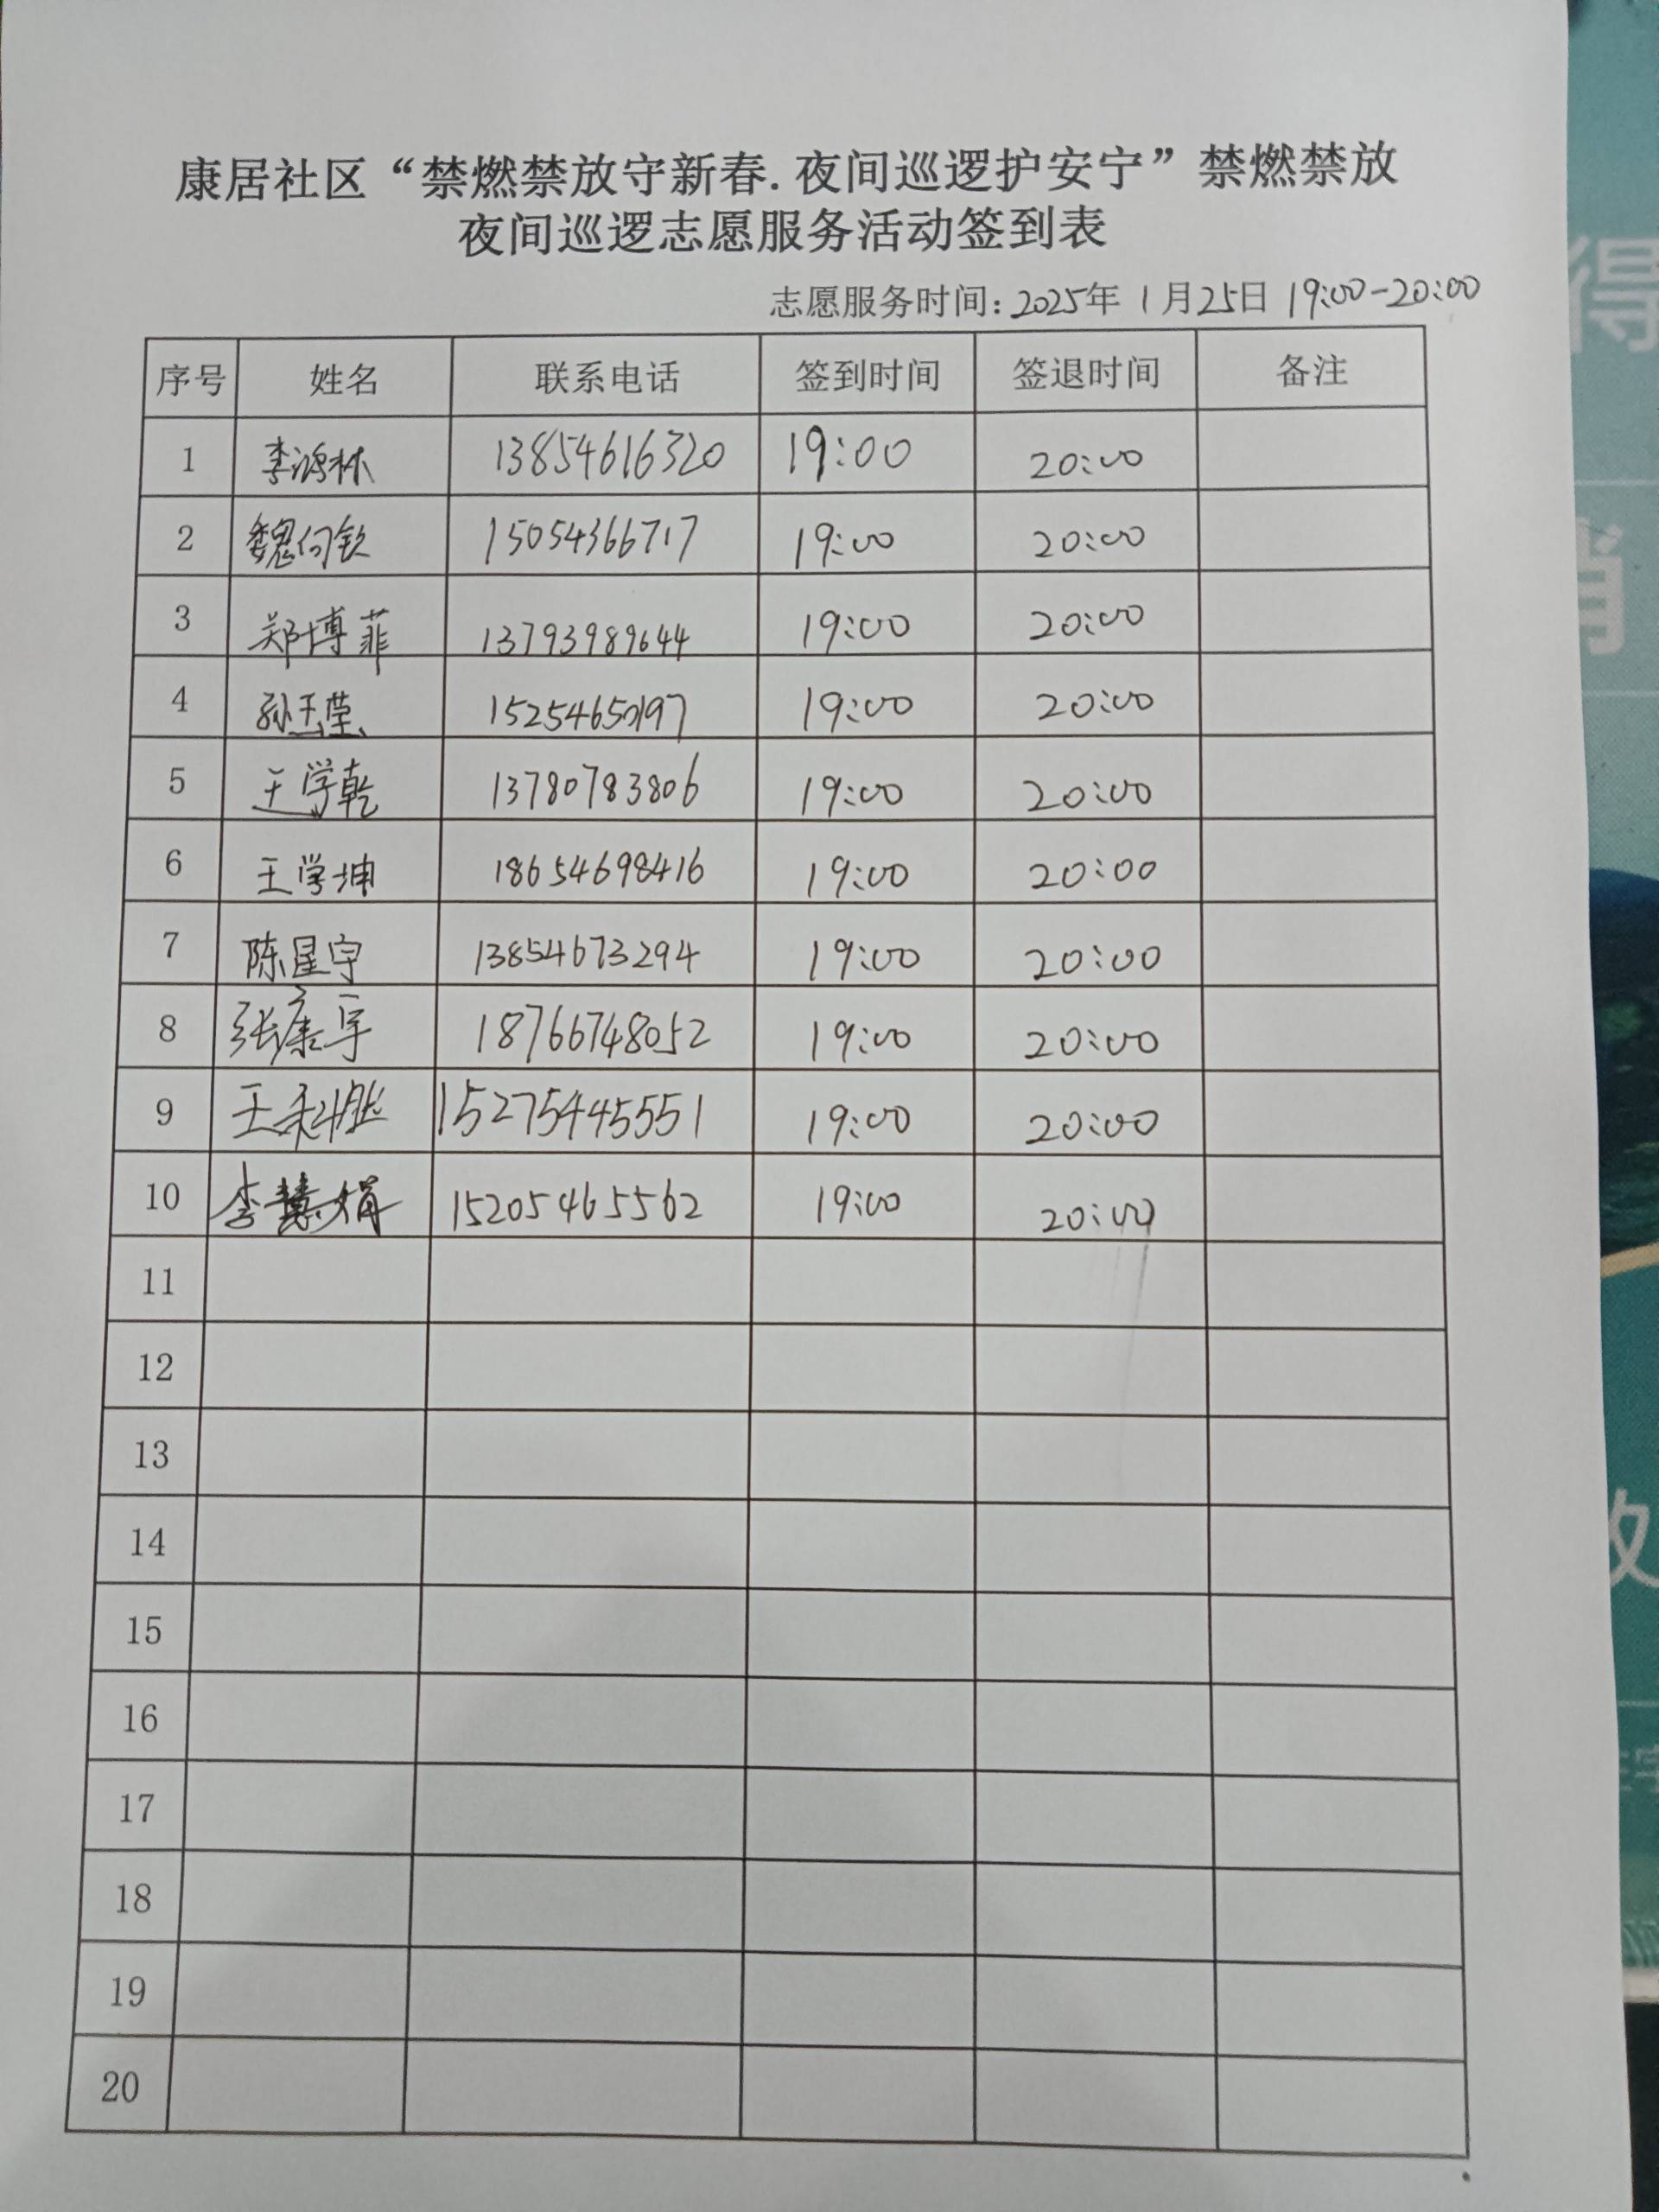 康居社区“禁燃禁放守新春.夜间巡逻护安宁”禁燃禁放
夜间巡逻志愿服务活动签到表
志愿服务时间：2025年 1月25日 19:00-20:00
序号 姓名 联系电话 签到时间 签退时间 备注
1 李鸿林 13854616320 19:00 20:00
2 魏何钦 15054366717 19:00 20:00
3 郑博菲 13793989644 19:00 20:00
4 孙玉莹 19:00 20:00
5 王学乾 13780783806 19:00 20:00
6 王学坤 18654698416 19:00 20:00
7 陈星宇 13854673294 19:00 20:00
8 张康宇 18766748052 19:00 20:00
9 15275445551 19:00 20:00
10 李慧娟 15205465562 19:00 20:00
11
12
13
14
15
16
17
18
19
20
得